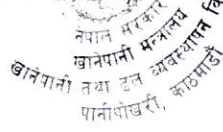 नेपाल सरकार
खानेपानी मन्त्रालय
खानेपानी तथा ढल व्यवस्थापन वि
पानीपोखरी, काठमाडौं